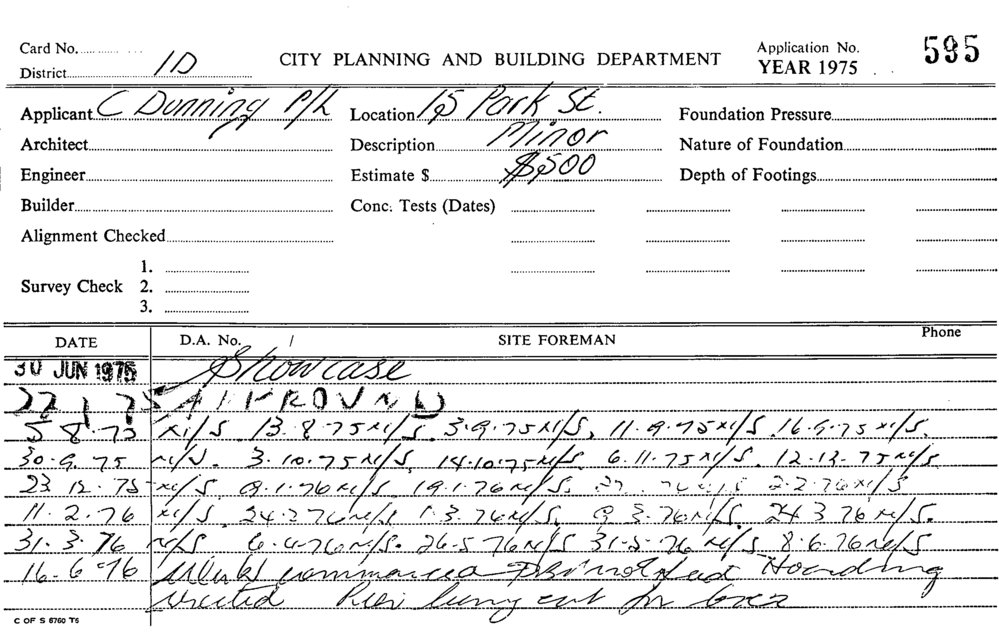 Card No. Application No. 595
District 1D CITY PLANNING AND BUILDING DEPARTMENT YEAR 1975
Applicant C Dunning P/L Location 15 Park St. Foundation Pressure
Architect Description Minor Nature of Foundation
Engineer Estimate $ $500 Depth of Footings
Builder Conc. Tests (Dates)
Alignment Checked
1.
Survey Check 2.
3.
DATE D.A. No. / SITE FOREMAN Phone
30 JUN 1975 Showcase
22 7 75 APPROVED
5 8.75 N/S 13.8.75 N/S 3.9.75 N/S, 11.9.75 N/S 16.9.75 N/S.
30.9.75 N/S. 3.10.75 N/S, 14.10.75 N/S. 6.11.75 N/S. 12.12.75 N/S
23 12.75 N/S 9.1.76 N/S 19.1.76 N/S. 2.2.76 N/S
11.2.76 N/S 24.2.76 N/S 1.3.76 N/S, 9 3.76 N/S, 24 3 76 N/S.
31.3.76 N/S 6.4.76 N/S. 26.5.76 N/S 31.5.76 N/S 8.6.76 N/S
16.6.76 Work commenced Hoarding
erected cut for
C OF S 6760 T6